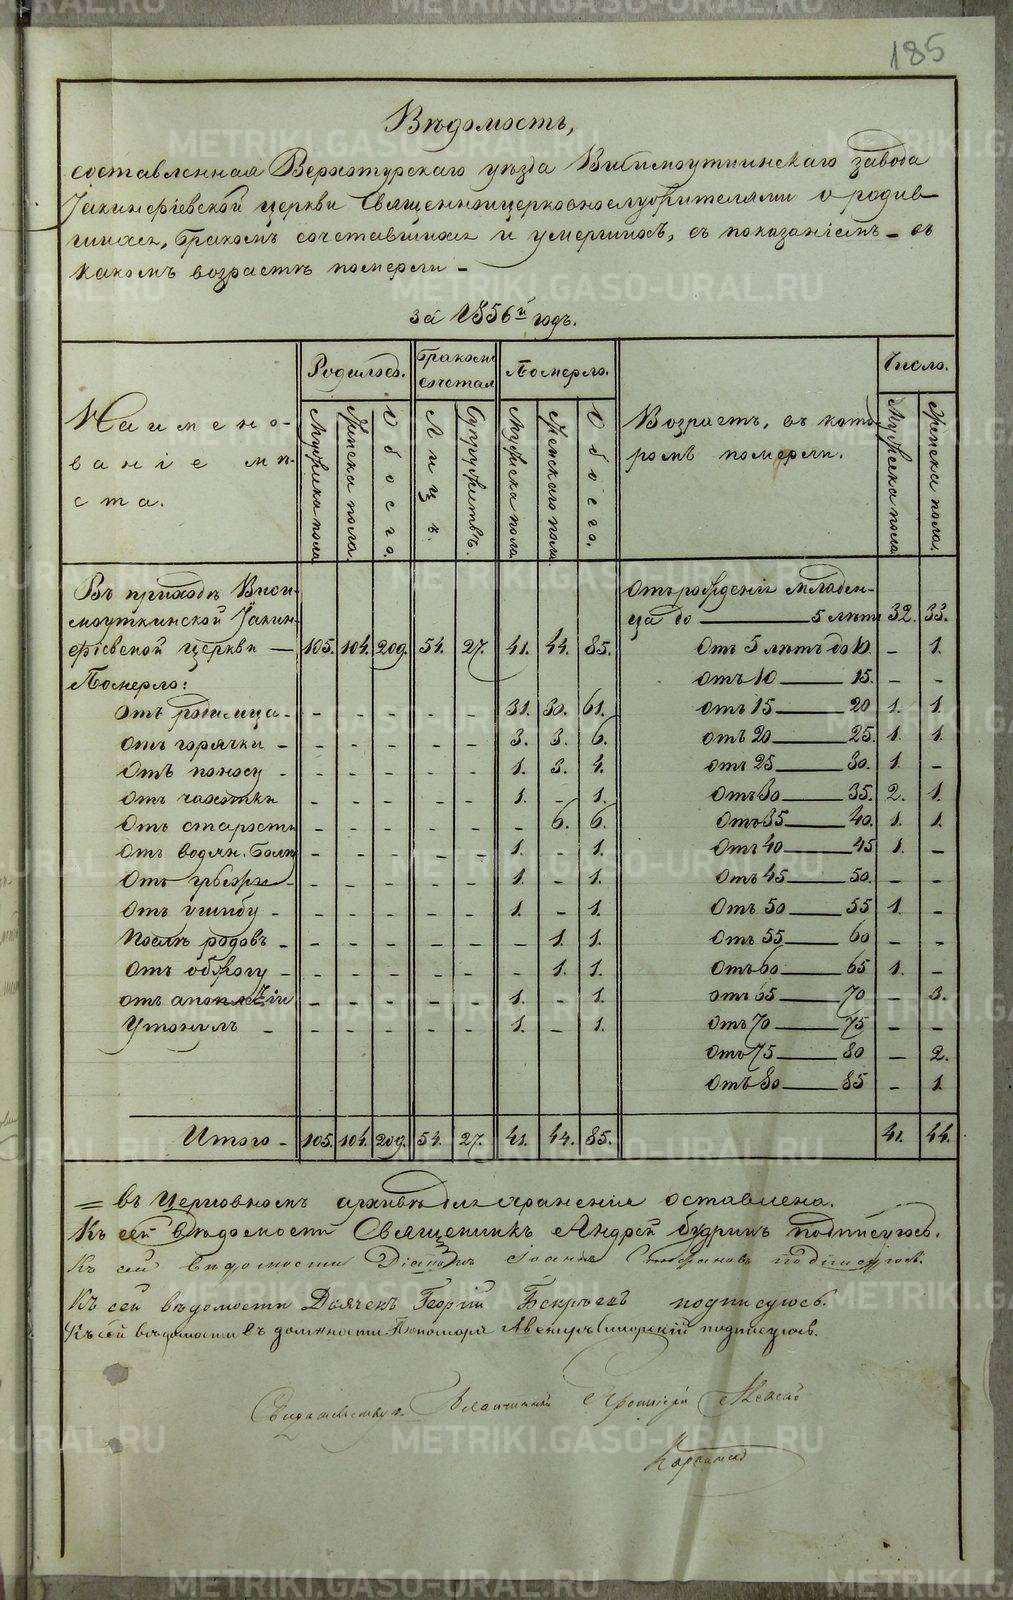 185
Вѣдомость,
составленная Верхотурского уѣзда Висимоуткинскаго завода
Іакинфіевской церкви Священноцерковнослужителями о родив-
шихся, бракомъ сочетавшихся и умершихъ, съ показаніемъ - въ
какомъ возрастѣ померли -
за 1856й годъ.
Наимено-
ваніе мѣ-
ста.
Родилось.
Мужеска пола
Женска пола.
Обоего.
Бракомъ
сочетал
Лицъ.
Супружествъ.
Померло.
Мужеска пола
Женскаго пола
Обоего.
Возрастъ, въ кото-
ромъ померли.
Число.
Мужеска пола
Женска пола.
Въ приходѣ Виси-
моуткинской Іакин-
фіевской церкви — 105. 104. 209. 54. 27. 41. 44. 85.
Померло:
Отъ родимца - - - - - - 31. 30. 61.
Отъ горячки - - - - - - 3. 3. 6.
Отъ поносу - - - - - - 1. 3. 4.
Отъ чахотки - - - - - 1. - 1.
Отъ старости - - - - - - 6. 6.
Отъ водян. болѣ - - - - - 1. - 1.
Отъ грыжи - - - - - - 1. - 1.
Отъ ушибу - - - - - - 1. - 1.
Послѣ родовъ - - - - - - - 1. 1.
Отъ обжогу - - - - - - - 1. 1.
отъ апоплексіи - - - - - 1. 1.
Утонулъ - - - - - - 1. - 1.
Отъ рожденія младен-
ца до — 5 лѣтъ 32. 33.
Отъ 5 лѣтъ до 10. - 1.
отъ 10 — 15. - -
отъ 15 — 20 1. 1.
отъ 20 — 25. 1. 1.
отъ 25 — 30. 1. -
Отъ 30 — 35. 2. 1.
Отъ 35 — 40. 1. 1.
Отъ 40 — 45 1. -
Отъ 45 — 50. - -
Отъ 50 — 55 1. -
Отъ 55 — 60 - -
Отъ 60 — 65 1. -
отъ 65 — 70 - 3.
Отъ 70 — 75 - -
Отъ 75 — 80 — 2.
Отъ 80 — 85 - 1.
Итого - 105. 104. 209. 54. 27. 41. 44. 85. 41. 44.
= въ Церковномъ архивѣ для храненія оставлена.
Къ сей вѣдомости Священникъ Андрей Будринъ подписуюсь.
Къ сей вѣдомости Діаконъ Іоаннъ Стефановъ подписуюсь.
Къ сей вѣдомости Дьячекъ Георгій подписуюсь.
Къ сей вѣдомости въ должности Пономаря Авениръ подписуюсь.
Свидѣтельствовалъ Благочинный Протоіерей
METRIKI.GASO-URAL.RU